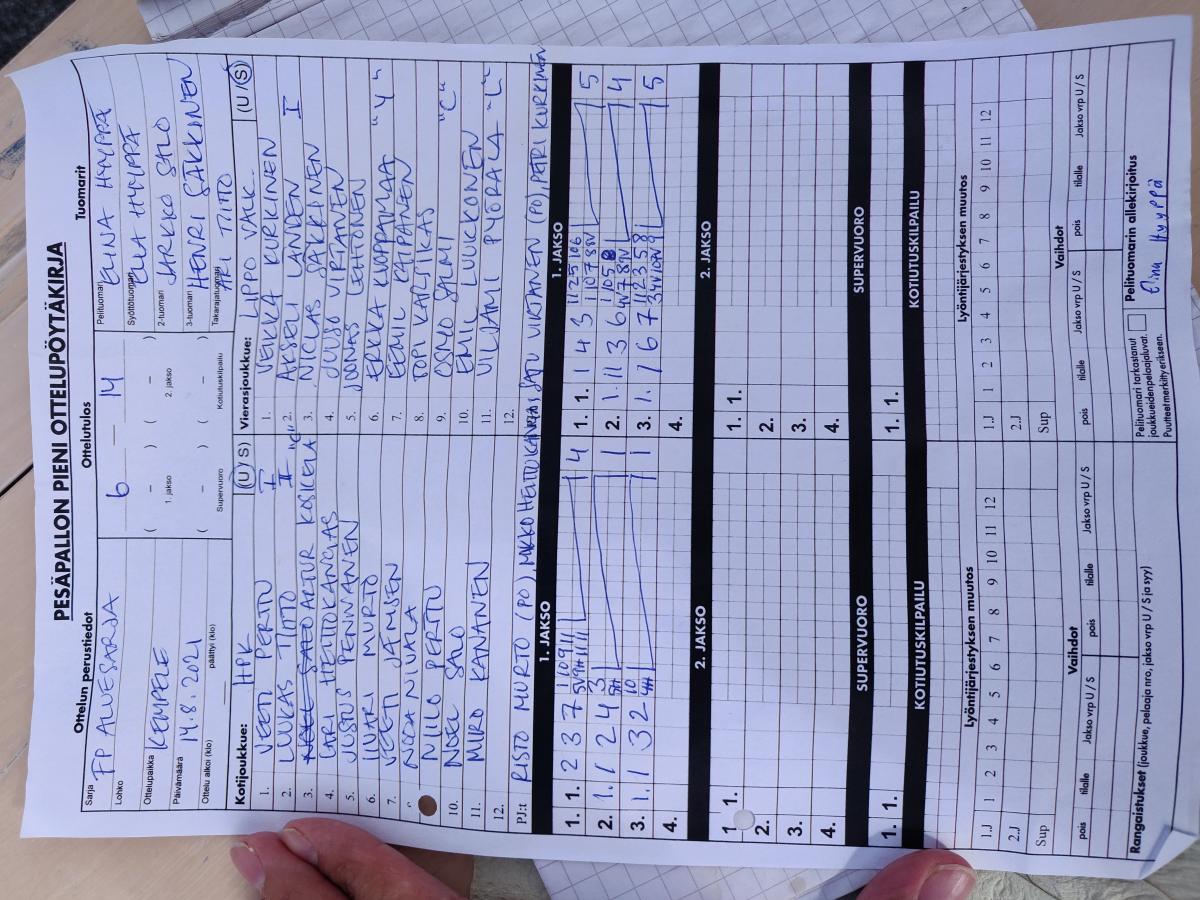 PESÄPALLON PIENI OTTELUPÖYTÄKIRJA
Ottelun perustiedot
Sarja FP ALUESARJA
Lohko
Ottelupaikka KEMPELE
Päivämäärä 14.8.2021
Ottelu alkoi (klo) päättyi (klo)
Ottelutulos
6 – 14
( – ) ( – )
1. jakso 2. jakso
( – ) ( – )
Supervuoro Kotiutuskilpailu
Tuomarit
Pelituomari ELINA HYYPPÄ
Syöttötuomari ELLA HYYPPÄ
2-tuomari JARKKO SALO
3-tuomari HENRI SÄKKINEN
Takarajatuomari ARI TIITTO
Kotijoukkue: HPK (U / S)
1. VEETI PERTTU I
2. LUUKAS TIITTO II
3. ALTUR KOSKELA "C"
4. LARI HEITTOKANGAS
5. JUSTUS PENNANEN
6. IIVARI MURTO
7. VEETI JÄMSEN
NOOA NIVALA
NIILO PERTTU
10. NOEL SALO
11. MIRO KANANEN
12.
Vierasjoukkue: LIPPO VALK. (U / S)
1. VEIKKA KURKINEN
2. AKSELI LANDEN I
3. NICLAS SÄKKINEN
4. JUUSO VIRTANEN
5. JOONAS LEHTONEN
6. ERKKA KUOPPAMAA "Y"
7. EEMIL RÄIPÄNEN
8. TOPI KARSIKAS
9. OSMO SALMI "C"
10. EMIL LUUKKONEN
11. VILJAMI PYÖRÄLÄ "L"
12.
PJ:t RISTO MURTO (PO), MIKKO HEITTOKANGAS, SATU VIRTANEN (PO), PÄRI KURKINEN
1. JAKSO 1. JAKSO
1. 1. 2 3 7 4
2. 1. 1 2 4 1
3. 1. 1 3 2 1
4.
1. 1. 1 4 3 5
2. 1. 11 3 6 4
3. 1. 1 6 7 5
4.
2. JAKSO 2. JAKSO
1. 1.
2.
3.
4.
1. 1.
2.
3.
4.
SUPERVUORO SUPERVUORO
1. 1. 1. 1.
KOTIUTUSKILPAILU KOTIUTUSKILPAILU
Lyöntijärjestyksen muutos Lyöntijärjestyksen muutos
1.J 1 2 3 4 5 6 7 8 9 10 11 12 1.J 1 2 3 4 5 6 7 8 9 10 11 12
2.J 2.J
Sup Sup
Vaihdot Vaihdot
pois tilalle Jakso vrp U / S pois tilalle Jakso vrp U / S pois tilalle Jakso vrp U / S pois tilalle Jakso vrp U / S
Rangaistukset (joukkue, pelaaja nro, jakso vrp U / S ja syy)
Pelituomari tarkastanut
joukkueidenpeloajaluvat.
Puutteet merkitty erikseen.
Pelituomarin allekirjoitus
Elina Hyyppä